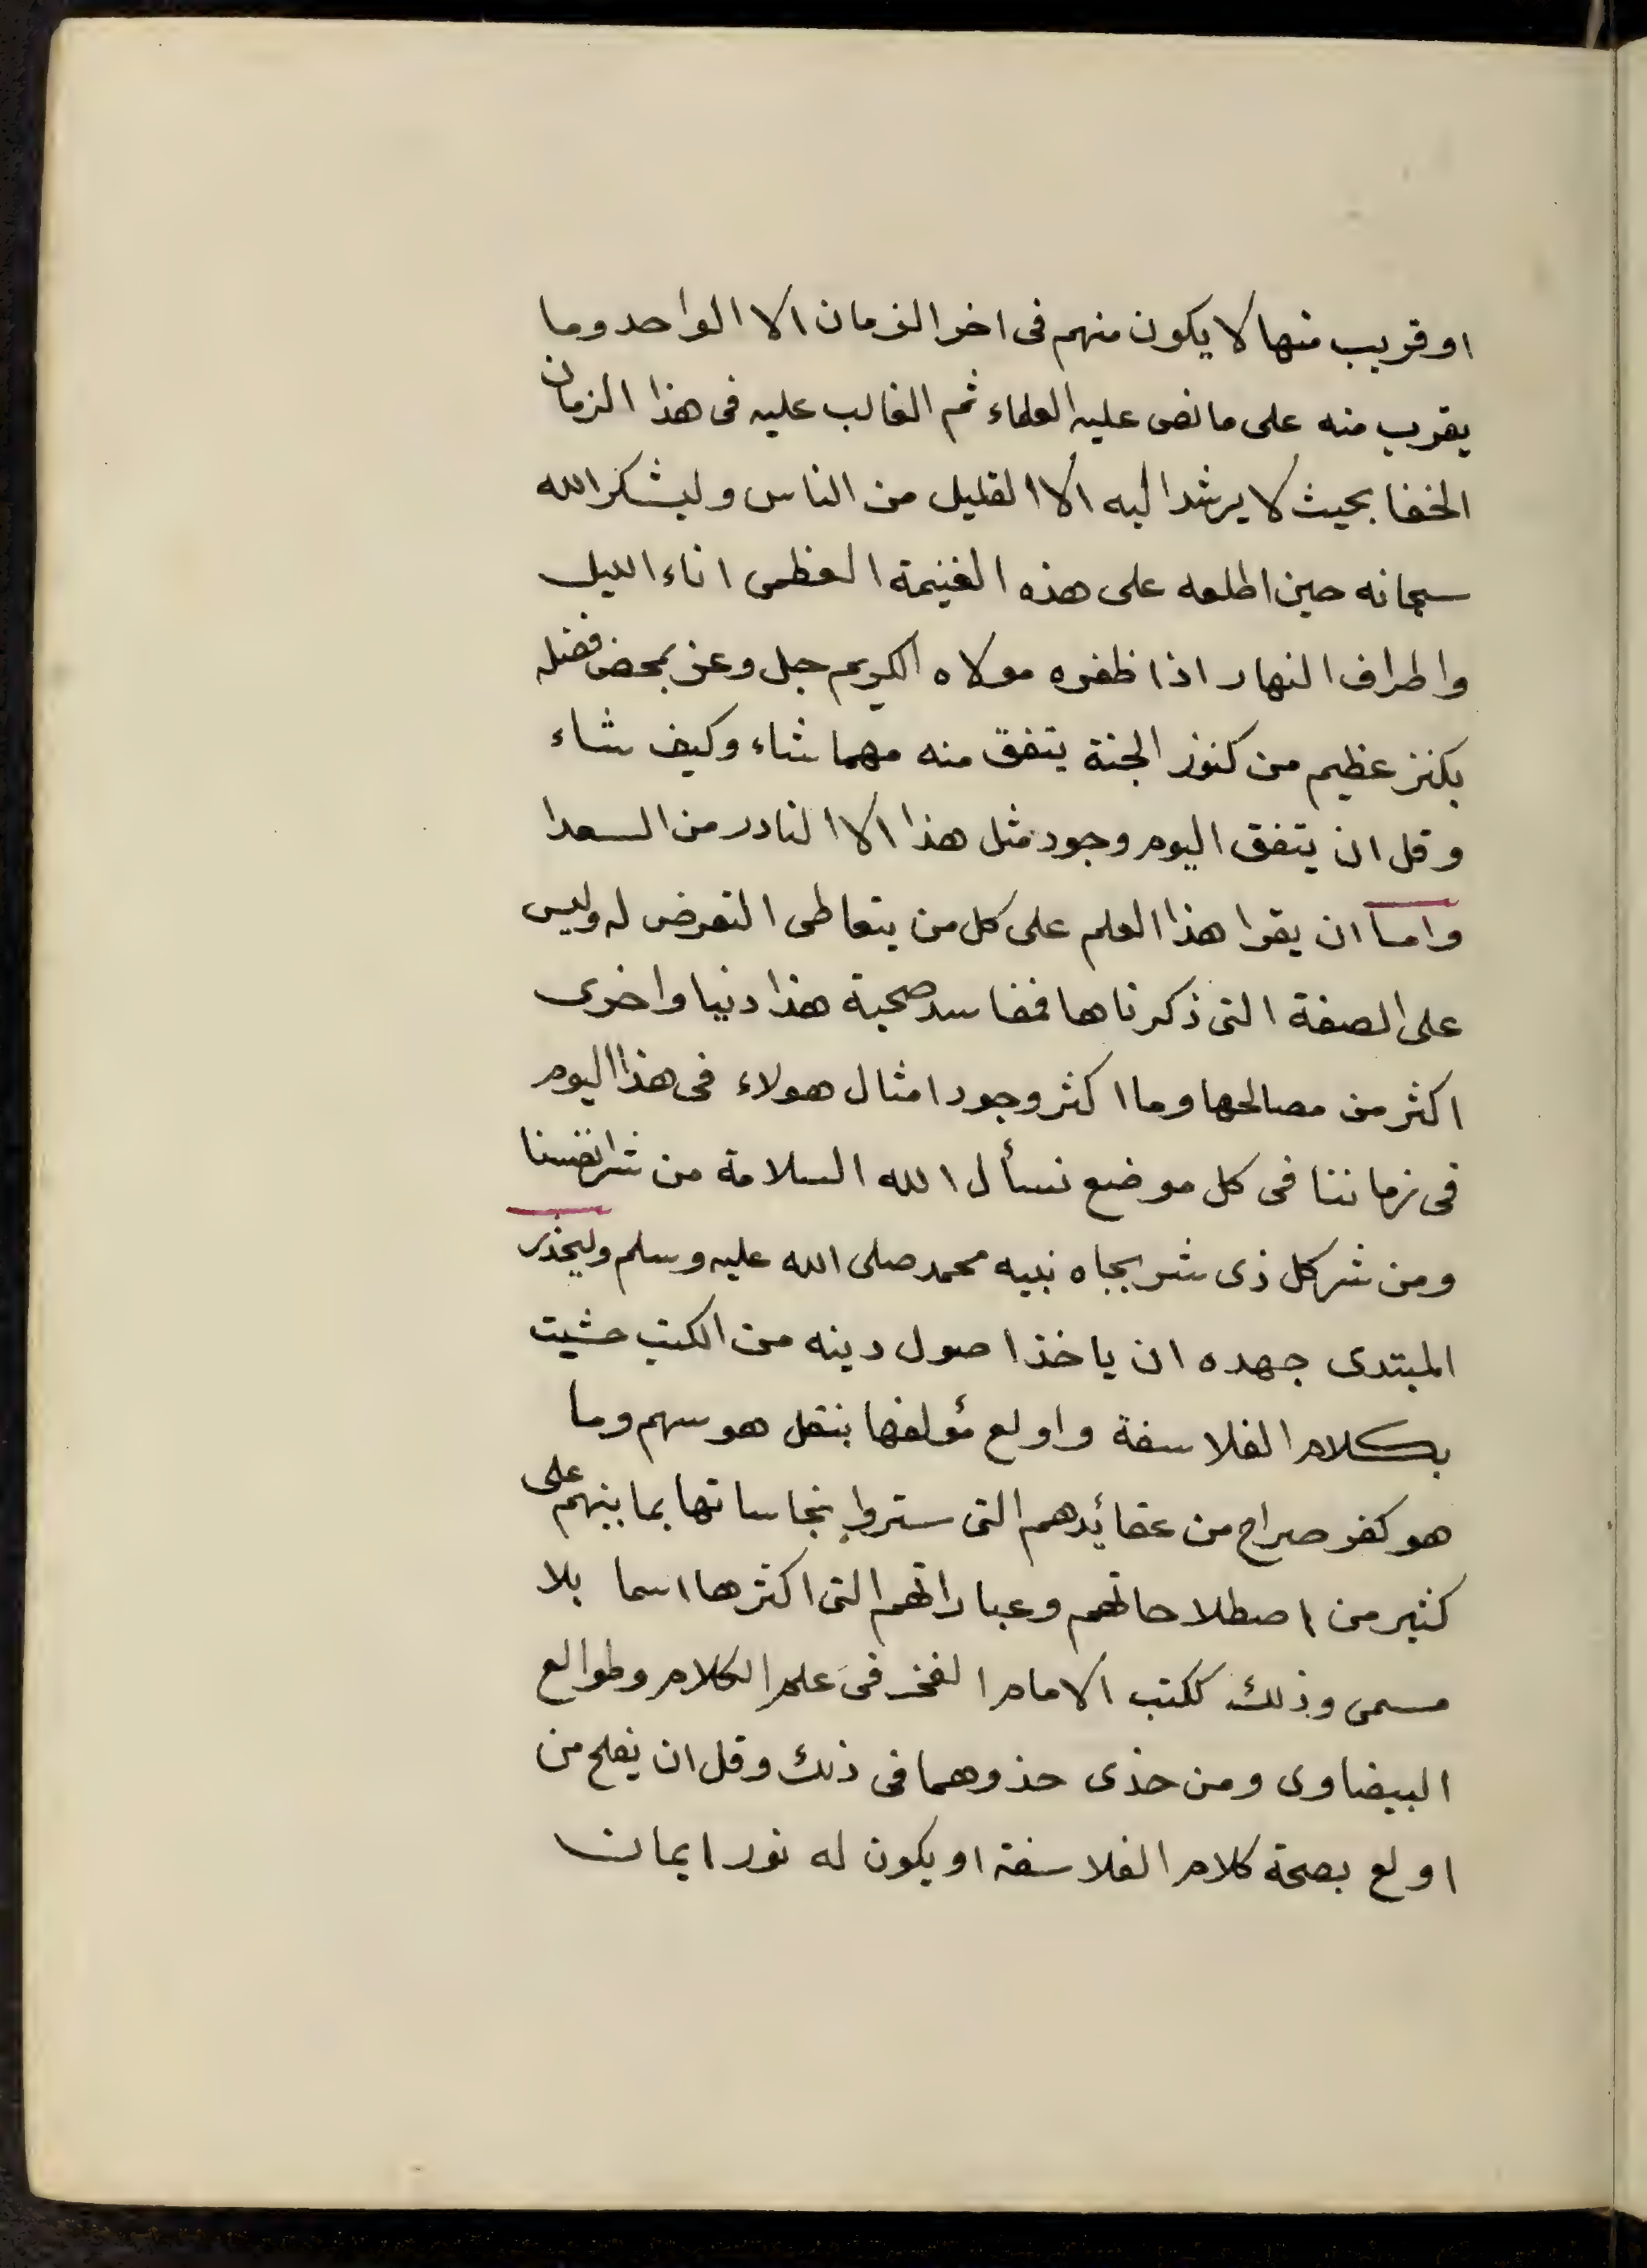 او قريب منها لا يكون منهم فى اخر الزمان الا الواحد وما
يقرب منه على ما نص عليه العلماء ثم الغالب عليه فى هذا الزمان
الخفا بحيث لا يرشد اليه الا القليل من الناس وليشكر الله
سبحانه حين اطلعه على هذه الغنيمة العظمى اناء الليل
واطراف النهار اذا ظفره مولاه الكريم جل وعز بمحض فضله
بكنز عظيم من كنوز الجنة يتفق منه مهما شاء وكيف شاء
وقل ان يتفق اليوم وجود مثل هذا الا النادر من السعدا
واما ان يقرا هذا العلم على كل من يتعاطى التعرض له وليس
على الصفة التى ذكرناها فمفاسد صحبة هذا دنيا واخرى
اكثر من مصالحها وما اكثر وجود امثال هولاء فى هذا اليوم
فى زماننا فى كل موضع نسأل الله السلامة من شر انفسنا
ومن شر كل ذى شر بجاه نبيه محمد صلى الله عليه وسلم وليحذر
المبتدى جهده ان ياخذ اصول دينه من الكتب حشيت
بكلام الفلاسفة واولع مؤلفها بنقل هوسهم وما
هو كفر صراح من عقائدهم التى ستروا نجاساتها بما ينبهم على
كثير من اصطلاحاتهم وعباراتهم التى اكثرها اسما بلا
مسمى وذلك ككتب الامام الفخر فى علم الكلام وطوالع
البيضاوى ومن حذى حذوهما فى ذلك وقل ان يفلح من
اولع بصحة كلام الفلاسفة او يكون له نور ايمان